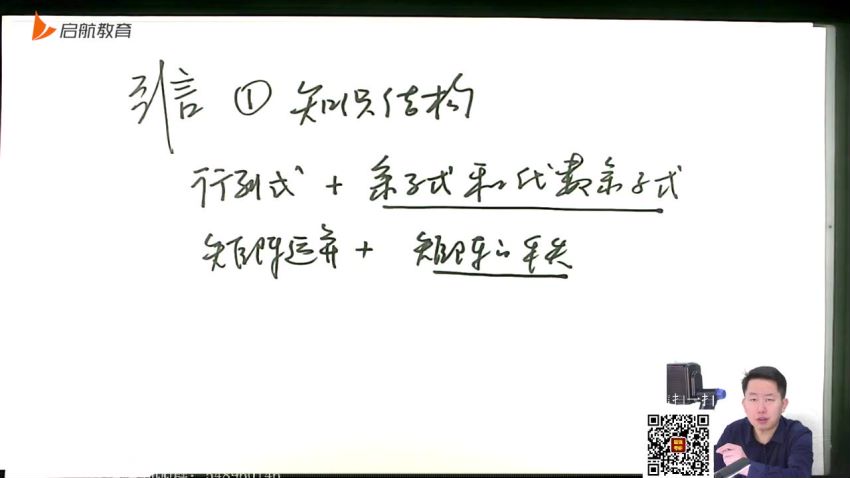 启航教育
引言 ① 知识结构
行列式 + 余子式和代数余子式
矩阵运算 + 矩阵的秩
扫一扫